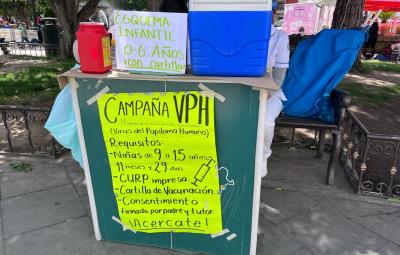 ESQUEMA
INFANTIL
0-6 AÑOS
*con cartilla*
CAMPAÑA VPH
(Virus del Papiloma Humano)
Requisitos:
-Niñas de 9 a 15 años
11 meses y 29 días
-CURP impresa
-Cartilla de Vacunación
-Consentimiento
firmado por padre y tutor
¡Acercate!